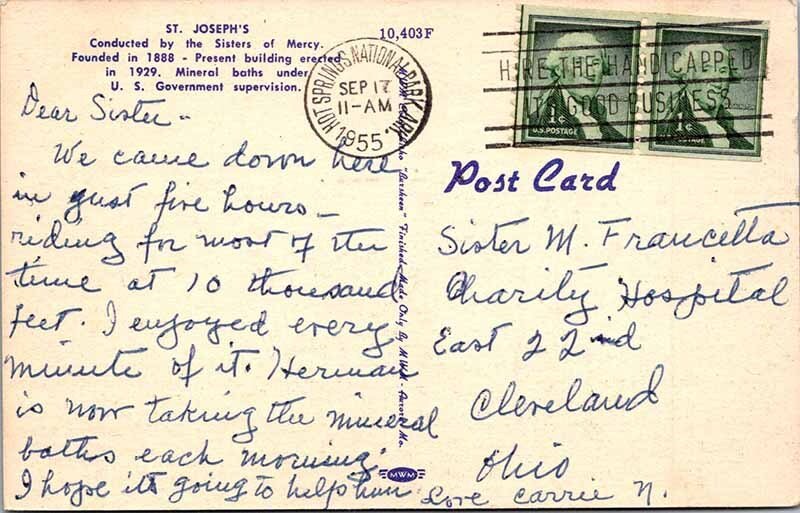 ST. JOSEPH'S
Conducted by the Sisters of Mercy.
Founded in 1888 - Present building erected
in 1929. Mineral baths under
U. S. Government supervision.
10,403F
HOT SPRINGS NATIONAL PARK, ARK.
SEP 17
11-AM
1955
HIRE THE HANDICAPPED
IT'S GOOD BUSINESS
1¢
U.S. POSTAGE
1¢
U.S. POSTAGE
Dear Sister -
We came down here
in just five hours -
riding for most of the
time at 10 thousand
feet. I enjoyed every
minute of it. Herman
is now taking the mineral
baths each morning.
I hope its going to help him
Love Carrie N.
"Finished Made Only By MWM - Aurora, Mo.
MWM
Post Card
Sister M. Francetta
Charity Hospital
East 22nd
Cleveland
Ohio